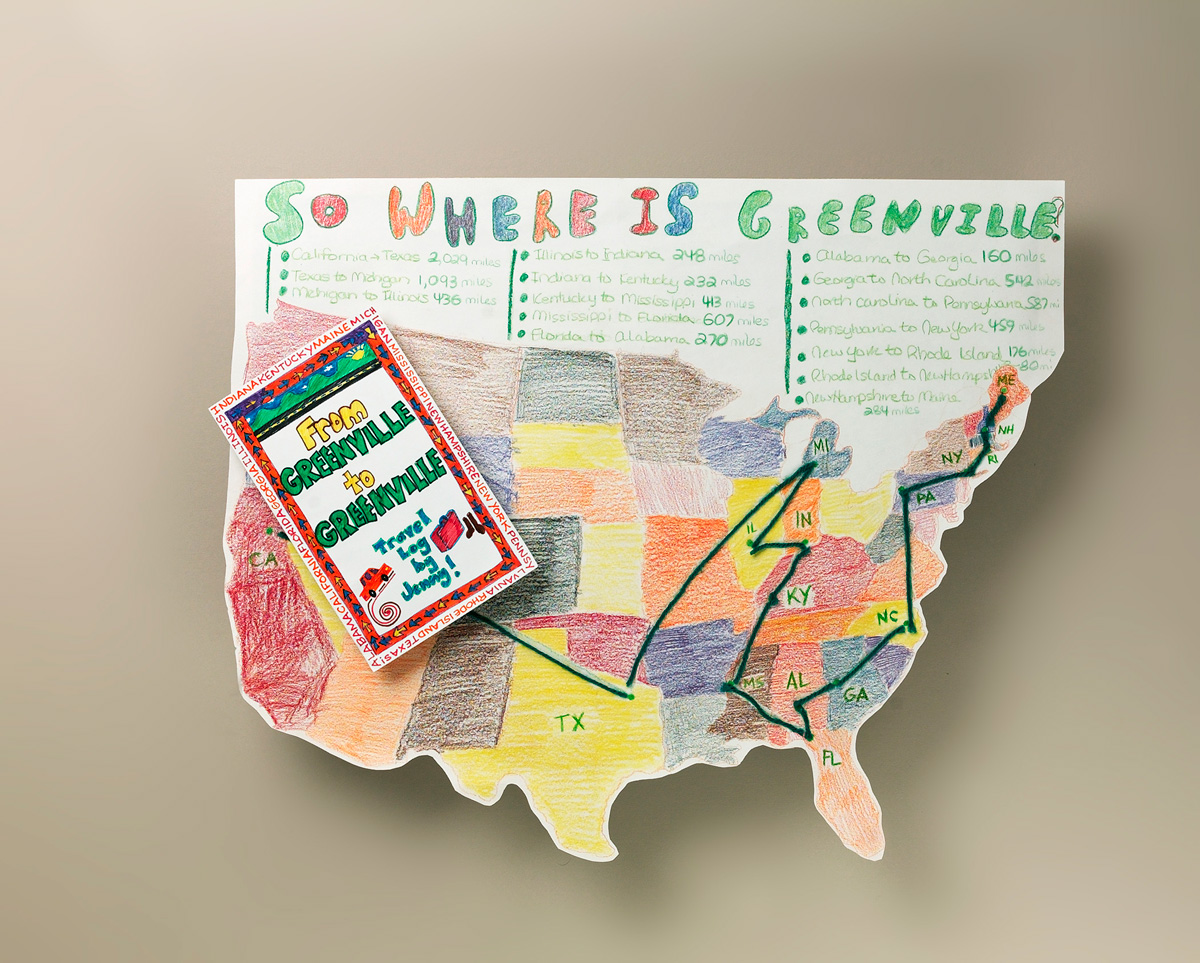 SO WHERE IS GREENVILLE?
California → Texas 2,029 miles
Texas to Michigan 1,093 miles
Michigan to Illinois 436 miles
Illinois to Indiana 248 miles
Indiana to Kentucky 232 miles
Kentucky to Mississippi 413 miles
Mississippi to Florida 607 miles
Florida to Alabama 270 miles
Alabama to Georgia 160 miles
Georgia to North Carolina 542 miles
North Carolina to Pennsylvania 587 mi
Pennsylvania to New York 459 miles
New York to Rhode Island 176 miles
Rhode Island to New Hampshire 80 mi
New Hampshire to Maine
284 miles
INDIANA KENTUCKY MAINE MICHIGAN MISSISSIPPI NEW HAMPSHIRE NEW YORK PENNSYLVANIA RHODE ISLAND TEXAS
ALABAMA CALIFORNIA FLORIDA GEORGIA ILLINOIS
From
GREENVILLE
to
GREENVILLE
Travel
Log
by
Jenny!
ME
NH
NY
RI
PA
MI
IL
IN
CA
KY
NC
MS
AL
GA
TX
FL